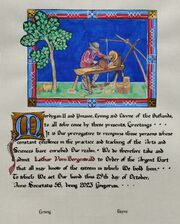 Mordygan II and Ymanne, Crong and Cwene of the Outlands,
to all who come by these presents, Greetings
It is Our prerogative to recognize those persons whose
constant excellence in the practice and teaching of the Arts and
Sciences have enriched Our realm. We do therefore take and
admit Lothar Vom Bergenwald to Order of the Argent Hart
that all may know of the esteem in which We hold him.
To which We set Our hand this 28th day of October,
Anno Societatis 58, being 2023 Gregorian.